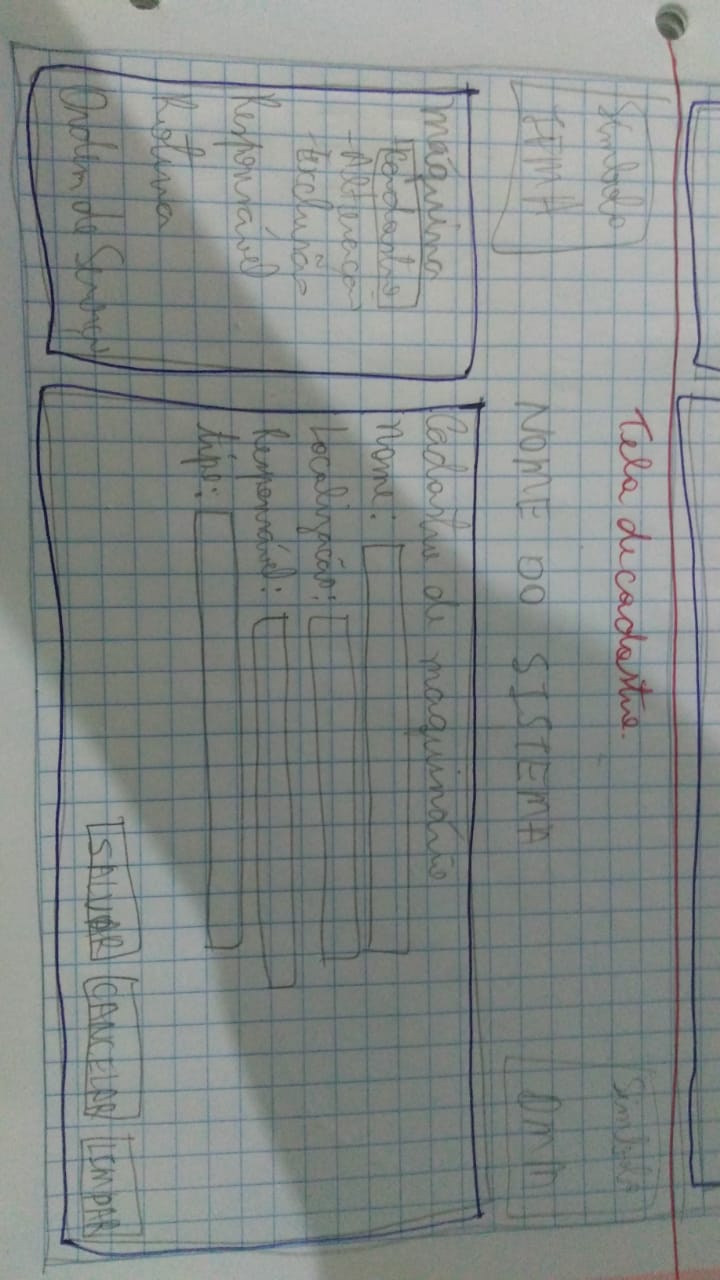 Tela de cadastro.
Símbolo
IFMA
NOME DO SISTEMA
Símbolo
DMM
Máquina
-Cadastro
-Alteração
-Exclusão
Responsável
Rotina
Ordem de Serviço
Cadastro de maquinário
Nome:
Localização:
Responsável:
tipo:
SALVAR CANCELAR LIMPAR